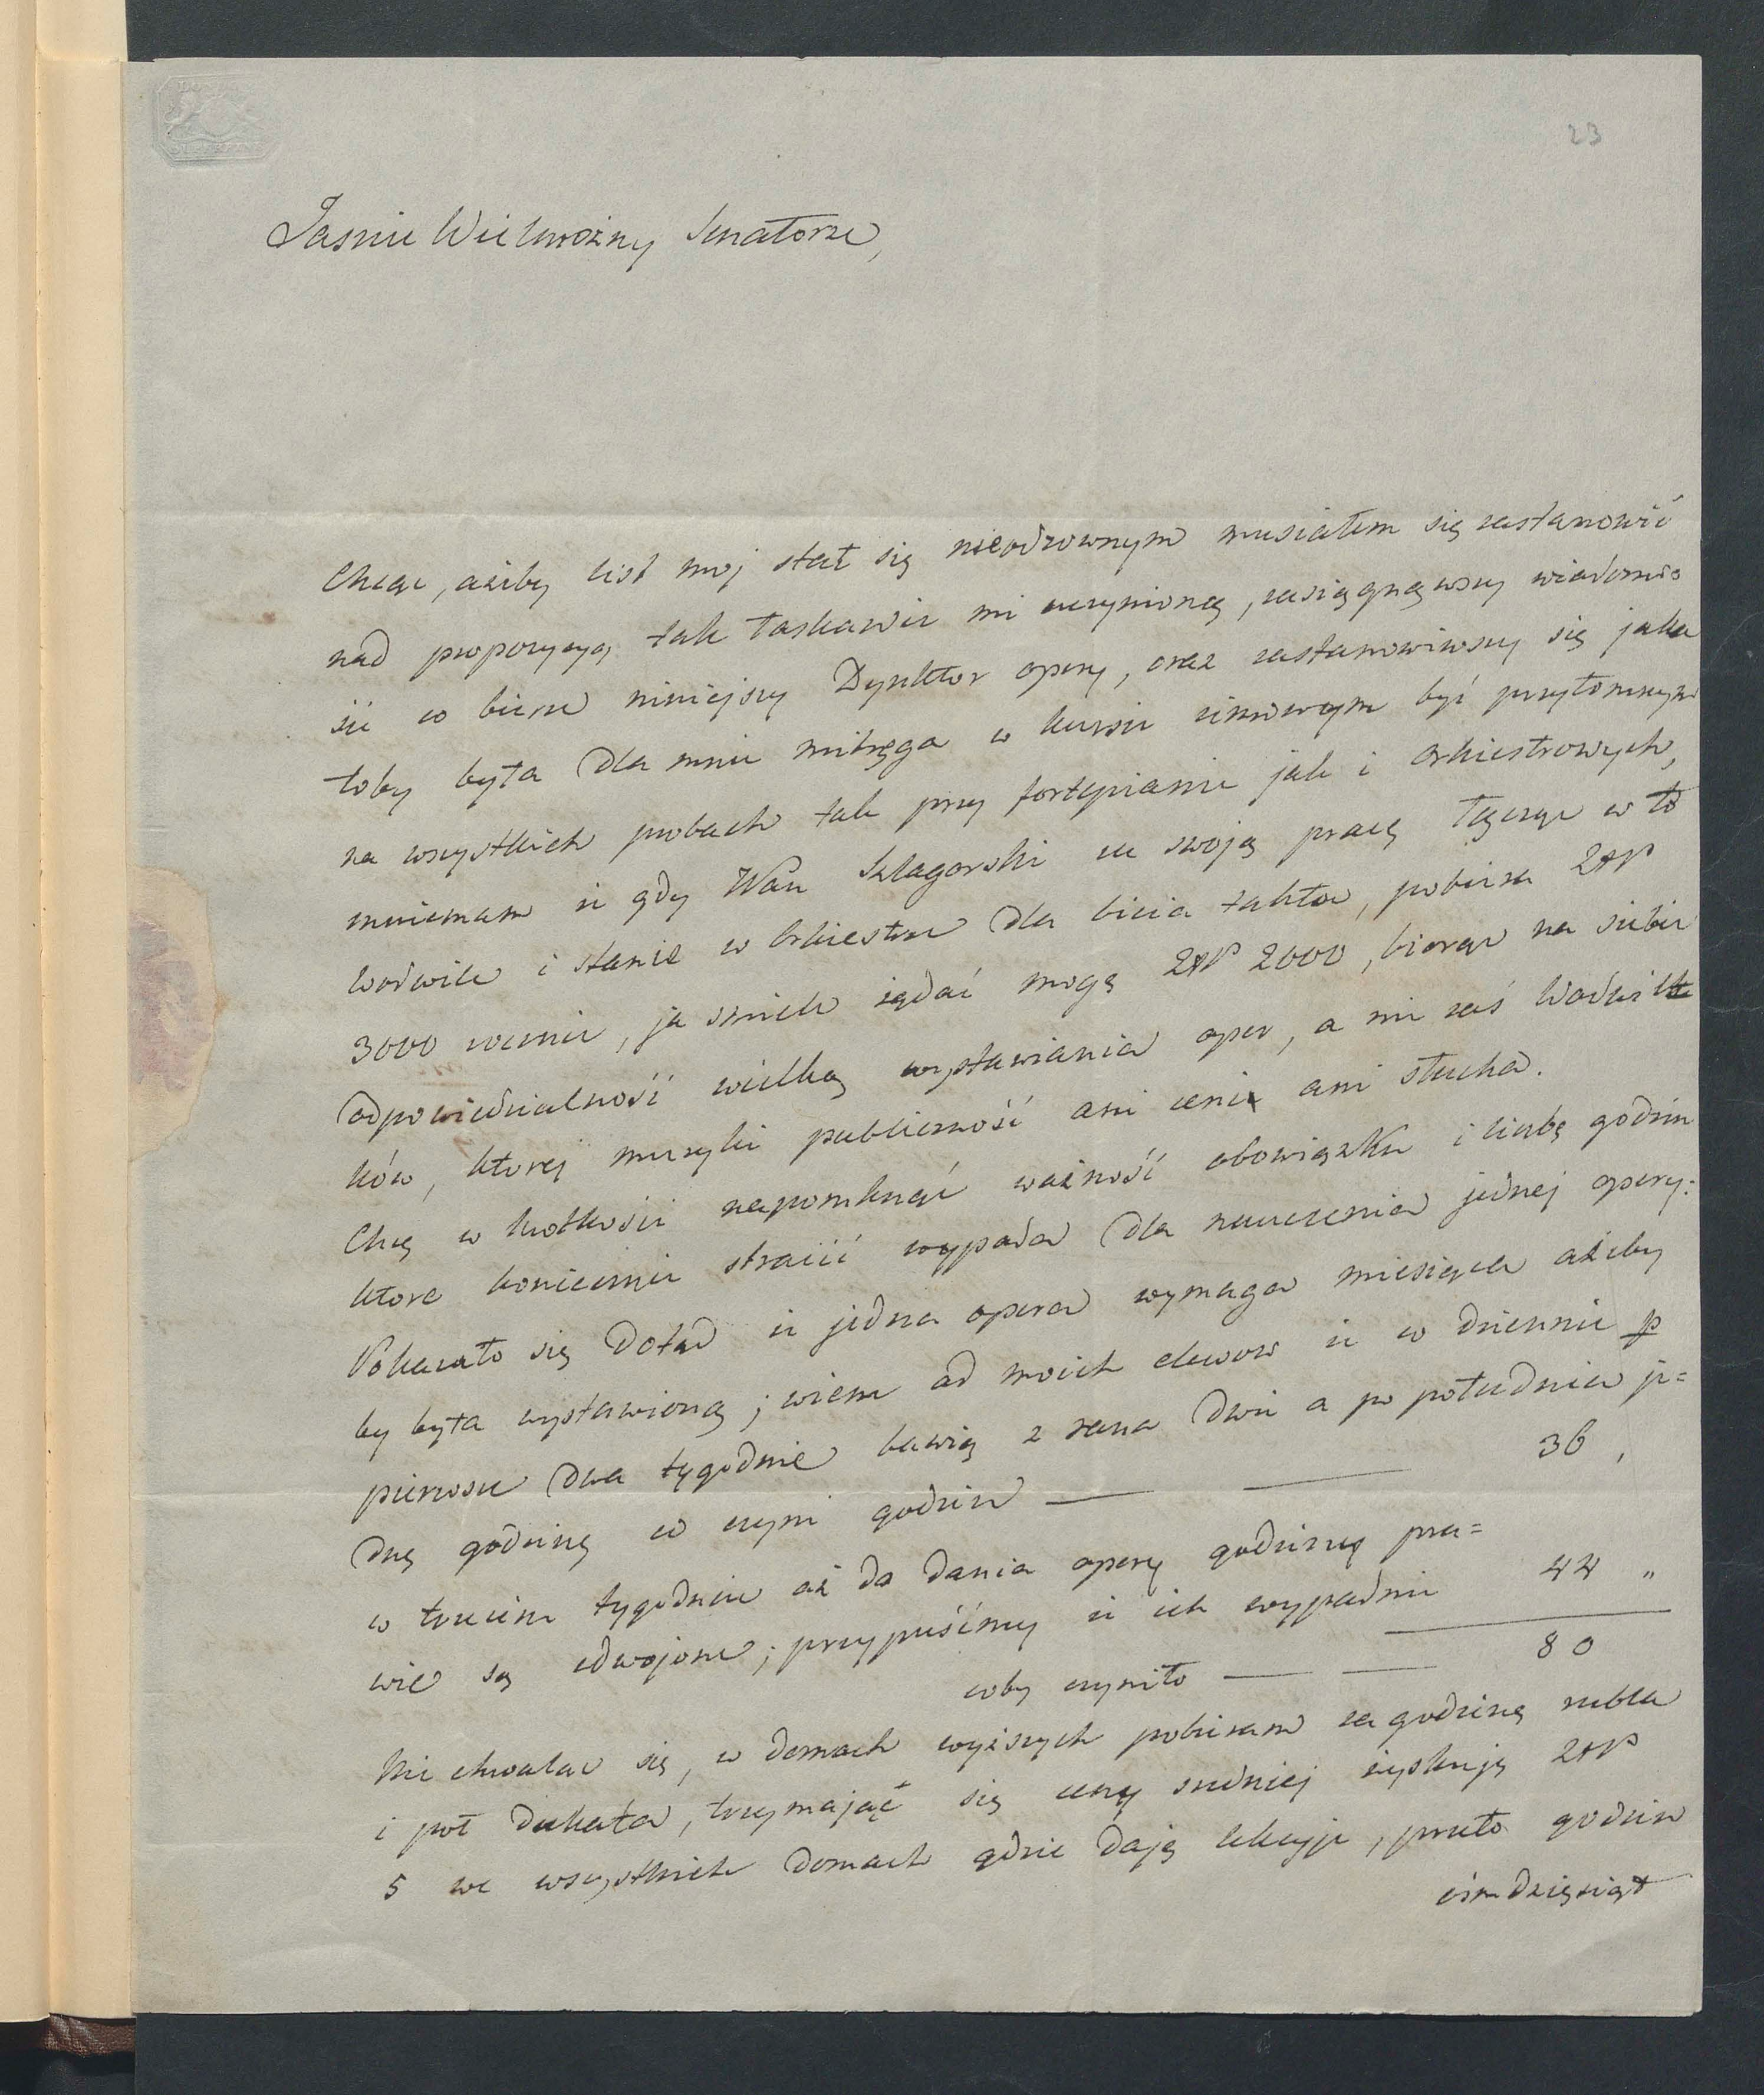 23
Jasnie Wielmożny Senatorze,
Chcąc, ażeby list moj stał się nieodzownym musiałem się zastanowić
nad propozycyą tak łaskawie mi uczynioną, zasięgnąwszy wiadomo
ści w biurze niniejszy Dyrektor opery, oraz zastanowiwszy się jaka
toby była dla mnie mitręga w kursie zimowym być przytomnym
na wszystkich probach tak przy fortepianie jak i orkiestrowych,
mniemam iż gdy Wan Szlagorski za swoją pracę łącząc w to
wodwile i stanie w Orkiestrze dla bicia taktu, pobiera ZłP
3000 rocznie, ja śmiele żądać mogę ZłP 2000, biorąc na siebie
odpowiedzialność wielką wystawiania oper, a nie zaś Wodwil
ków, ktorej muzyki publiczność ani ceni ani słucha.
Chcę w krotkości napomknąć ważność obowiązku i liczbę godzin
ktore koniecznie stracić wypada dla nauczenia jednej opery:
Pokazało się dotąd iż jedna opera wymaga miesiąca ażeby
by była wystawioną; wiem od moich elewow iż w dziennie p
pierwsze dwa tygodnie bawią z rana dwie a po południu je=
dną godzinę co czyni godzin — — 36,
w trzecim tygodniu aż do dania opery godziny pra=
wie są zdwojone; przypuśćmy iż ich wypadnie 44 "
coby czyniło — — 80
Nie chwaląc się, w domach wyższych pobieram za godzinę rubla
i poł dukata, trzymając się ceny sredniej zyskuję ZłP
5 we wszystkich domach gdzie daję lekcyje, przeto godzin
ośmdziesiąt